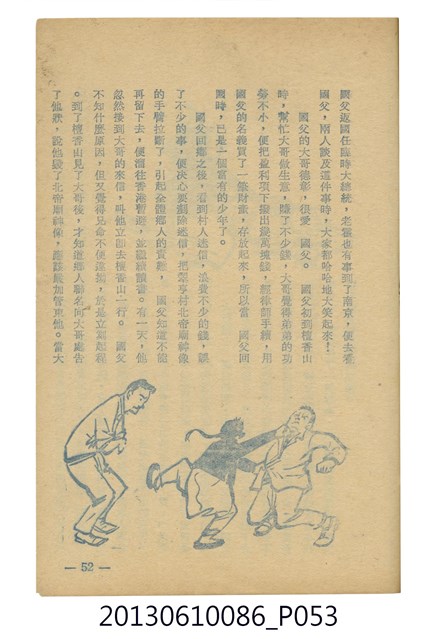 國父返國任臨時大總統，老翟也有事到了南京，便去看
國父，兩人談及這件事時，大家都哈哈地大笑起來！
國父的大哥德彰，很愛　國父。　國父初到檀香山
時，幫忙大哥做生意，賺了不少錢，大哥覺得弟弟的功
勞不小，便把盈利項下撥出幾萬塊錢，經律師手續，用
國父的名義買了一筆財產，存放起來，所以當　國父回
國時，已是一個富有的少年了。
國父回鄉之後，看到村人迷信，浪費不少的錢，誤
了不少的事，便決心要剷除迷信，把翠亨村北帝廟神像
的手臂拉斷了，引起全體鄉人的責難，　國父知道不能
再留下去，便溜往香港暫避，並繼續讀書。有一天，他
忽然接到大哥的來信，叫他立即去檀香山一行。　國父
不知什麼原因，但又覺得兄命不便違拗，於是立刻起程
。到了檀香山見了大哥後，才知道鄉人聯名向大哥處告
了他狀，說他毀了北帝廟神像，應該嚴加管束他。當大
— 52 —
20130610086_P053